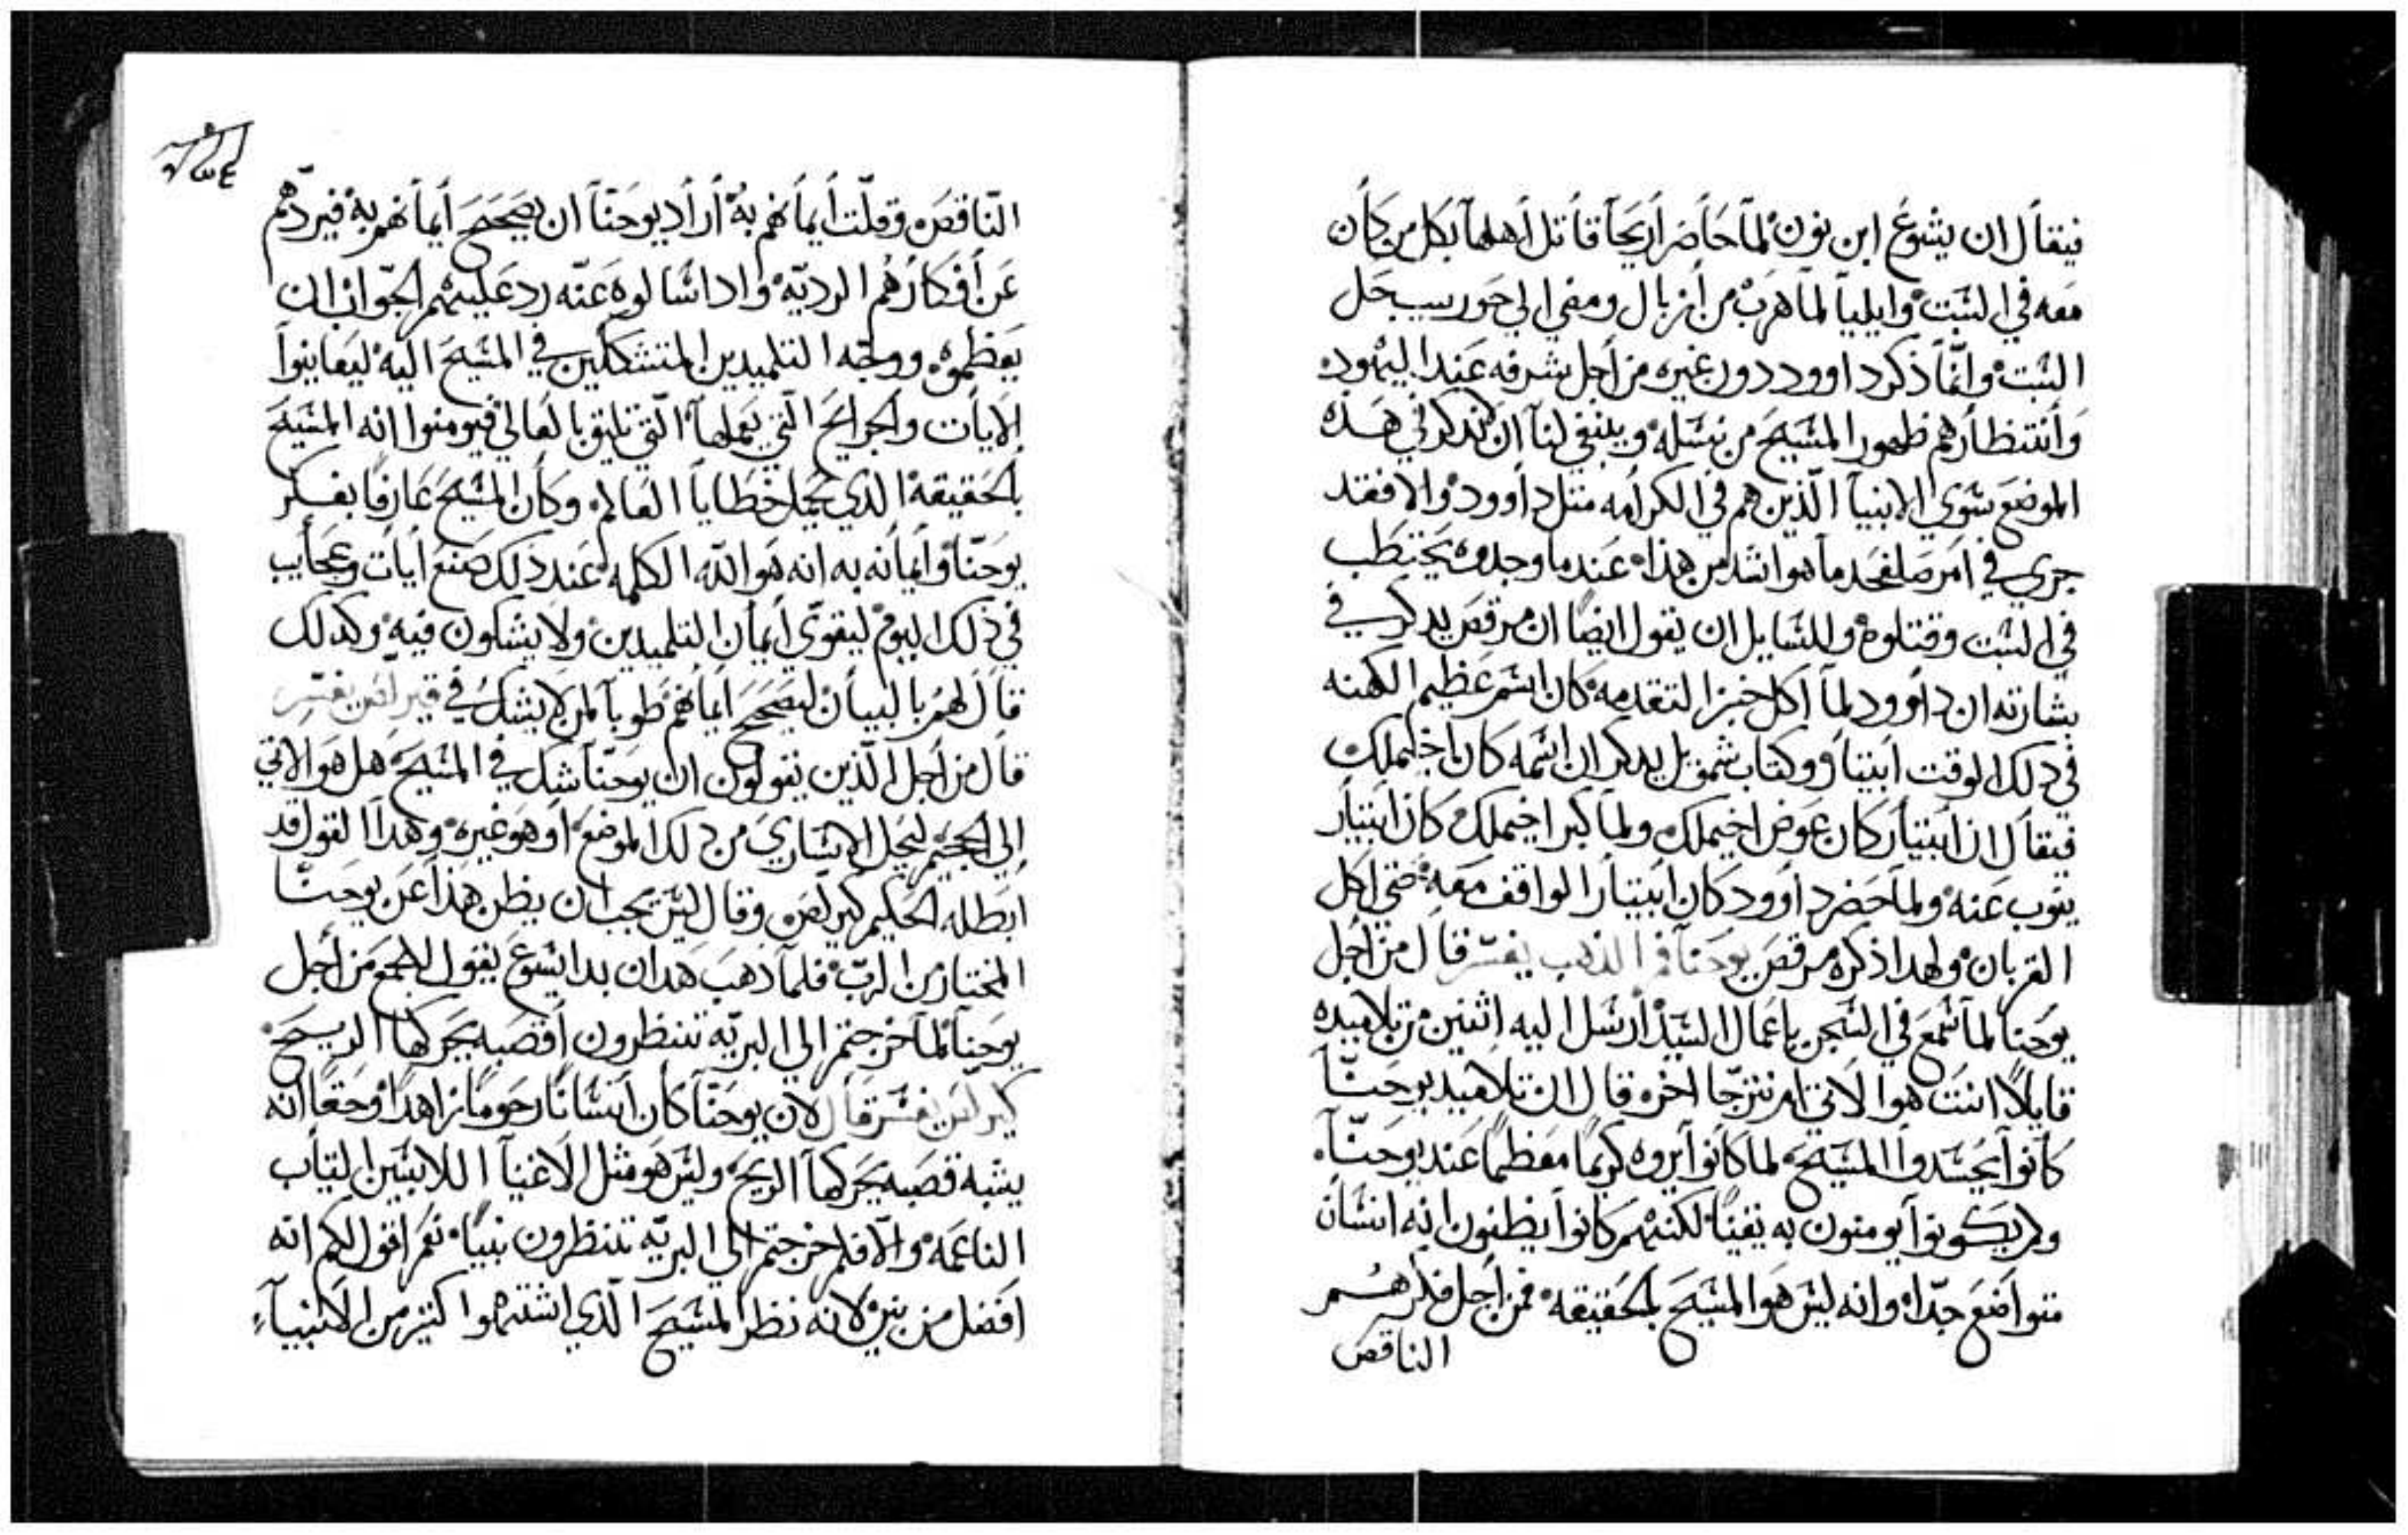 فيقال ان يشوع ابن نون لما حاصر اريحا قاتل اهلها بكل من كان
معه في السبت وايليا لما هرب من ازبال ومضي الي حوريب حل
السبت وانما ذكر داوود دون غيره من اجل شرفه عند اليهود
وانتظارهم ظهور المسيح من نسله وينبغي لنا ان نذكر في هذه
الموضع سوي الانبيا الذين هم في الكرامه متل داوود والا فقد
جري في امر صلفحد ما هو اشد من هذا عندما وجدوه يحتطب
في السبت وقتلوه وللسايل ان يقول ايضا ان مرقص يدكر في
بشارته ان داوود لما اكل خبز التقدمه كان اسم عظيم الكهنه
في دلك الوقت ابيتار وكتاب شمويل يدكر ان اسمه كان اخيملك
فيقال ان ابيتار كان عوض اخيملك ولما كبر اخيملك كان ابيتار
ينوب عنه ولما حضر داوود كان ابيتار الواقف معه حتي اكل
القربان ولهدا ذكره مرقص يوحنا فم الذهب يفسر قال من اجل
يوحنا لما سمع في السجن باعمال السيد ارسل اليه اثنين من تلاميده
قايلا انت هو الاتي ام نترجا اخر قال ان تلاميد يوحنا
كانوا يحسدوا المسيح لما كانوا يروه كريما معظما عند يوحنا
ولم يكونوا يومنون به يقينا لكنهم كانوا يظنون انه انسان
متواضع جدا وانه ليس هو المسيح بالحقيقه فمن اجل فكرهم
الناقص
الناقص وقلت ايمانهم به اراد يوحنا ان يصحح ايمانهم به فيردهم
عن افكارهم الرديه واداسالوه عنه رد عليهم الجواب ان
يعظموه ووجه التلميدين المتشككين في المسيح اليه ليعاينوا
الايات والجرايح التي يعملها التي تليق بالعالي فيومنوا انه المسيح
بالحقيقة الدي يحمل خطايا العالم وكان المسيح عارفا بفكر
يوحنا وايمانه به انه هو الله الكلمه عند ذلك صنع ايات وعجايب
في ذلك اليوم ليقوي ايمان التلميدين ولا يشكون فيه وكدلك
قال لهم بالبيان ليصحح ايمانهم طوبا لمن لا يشك في كيرلص يفسر
قال من اجل الذين يقولون ان يوحنا شك في المسيح هل هو الاتي
الي الجحيم ليحل الاساري من دلك الموضع او هو غيره وهدا القول قد
ابطله الحكيم كيرلص وقال ليس يجب ان يظن هذا عن يوحنا
المختار من الرب فلما ذهب هدان بدا يسوع يقول للجمع من اجل
يوحنا لما خرجتم الي البريه تنظرون اقصبه يحركها الريح
كيرلس يفسر قال لان يوحنا كان انسانا رحوما زاهدا وحقا انه
يشبه قصبه يحركها الريح وليس هو مثل الاغنيا اللابسين التياب
الناعمه والا فلم خرجتم الي البريه تنظرون نبيا نعم اقول لكم انه
افضل من نبي لانه نظر المسيح الذي اشتهوا كتير من الانبياء